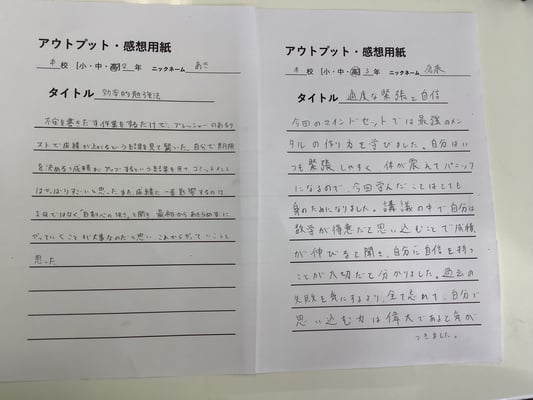 アウトプット・感想用紙
本校 [小・中・高] 2年 ニックネーム あき
タイトル 効率的勉強法
不安を書きだす作業をするだけで、プレッシャーのあるテ
ストで成績が上がるという結果を見て驚いた。自分で期限
を決めると成績がアップするという結果を見て、コミットメント
はやっぱりすごいと思った。また、成績に一番影響するのは
IQではなく「自制心の強さ」と聞き、最初からあきらめずに
やっていくことが大事なのだと思い、これからやっていこうと
思った
アウトプット・感想用紙
本校 [小・中・高] 3年 ニックネーム
タイトル 適度な緊張と自信
今回のマインドセットでは最強のメン
タルの作り方を学びました。自分はい
つも緊張しやすく、体が震えてパニック
になるので、今回学んだことはとても
身のためになりました。講議の中で自分は
数学が得意だと思い込むことで成績
が伸びると聞き、自分に自信を持つ
ことが大切だと分かりました。過去の
失敗を気にするより、全て忘れて、自分で
思い込む力は偉大であると気が
つきました。